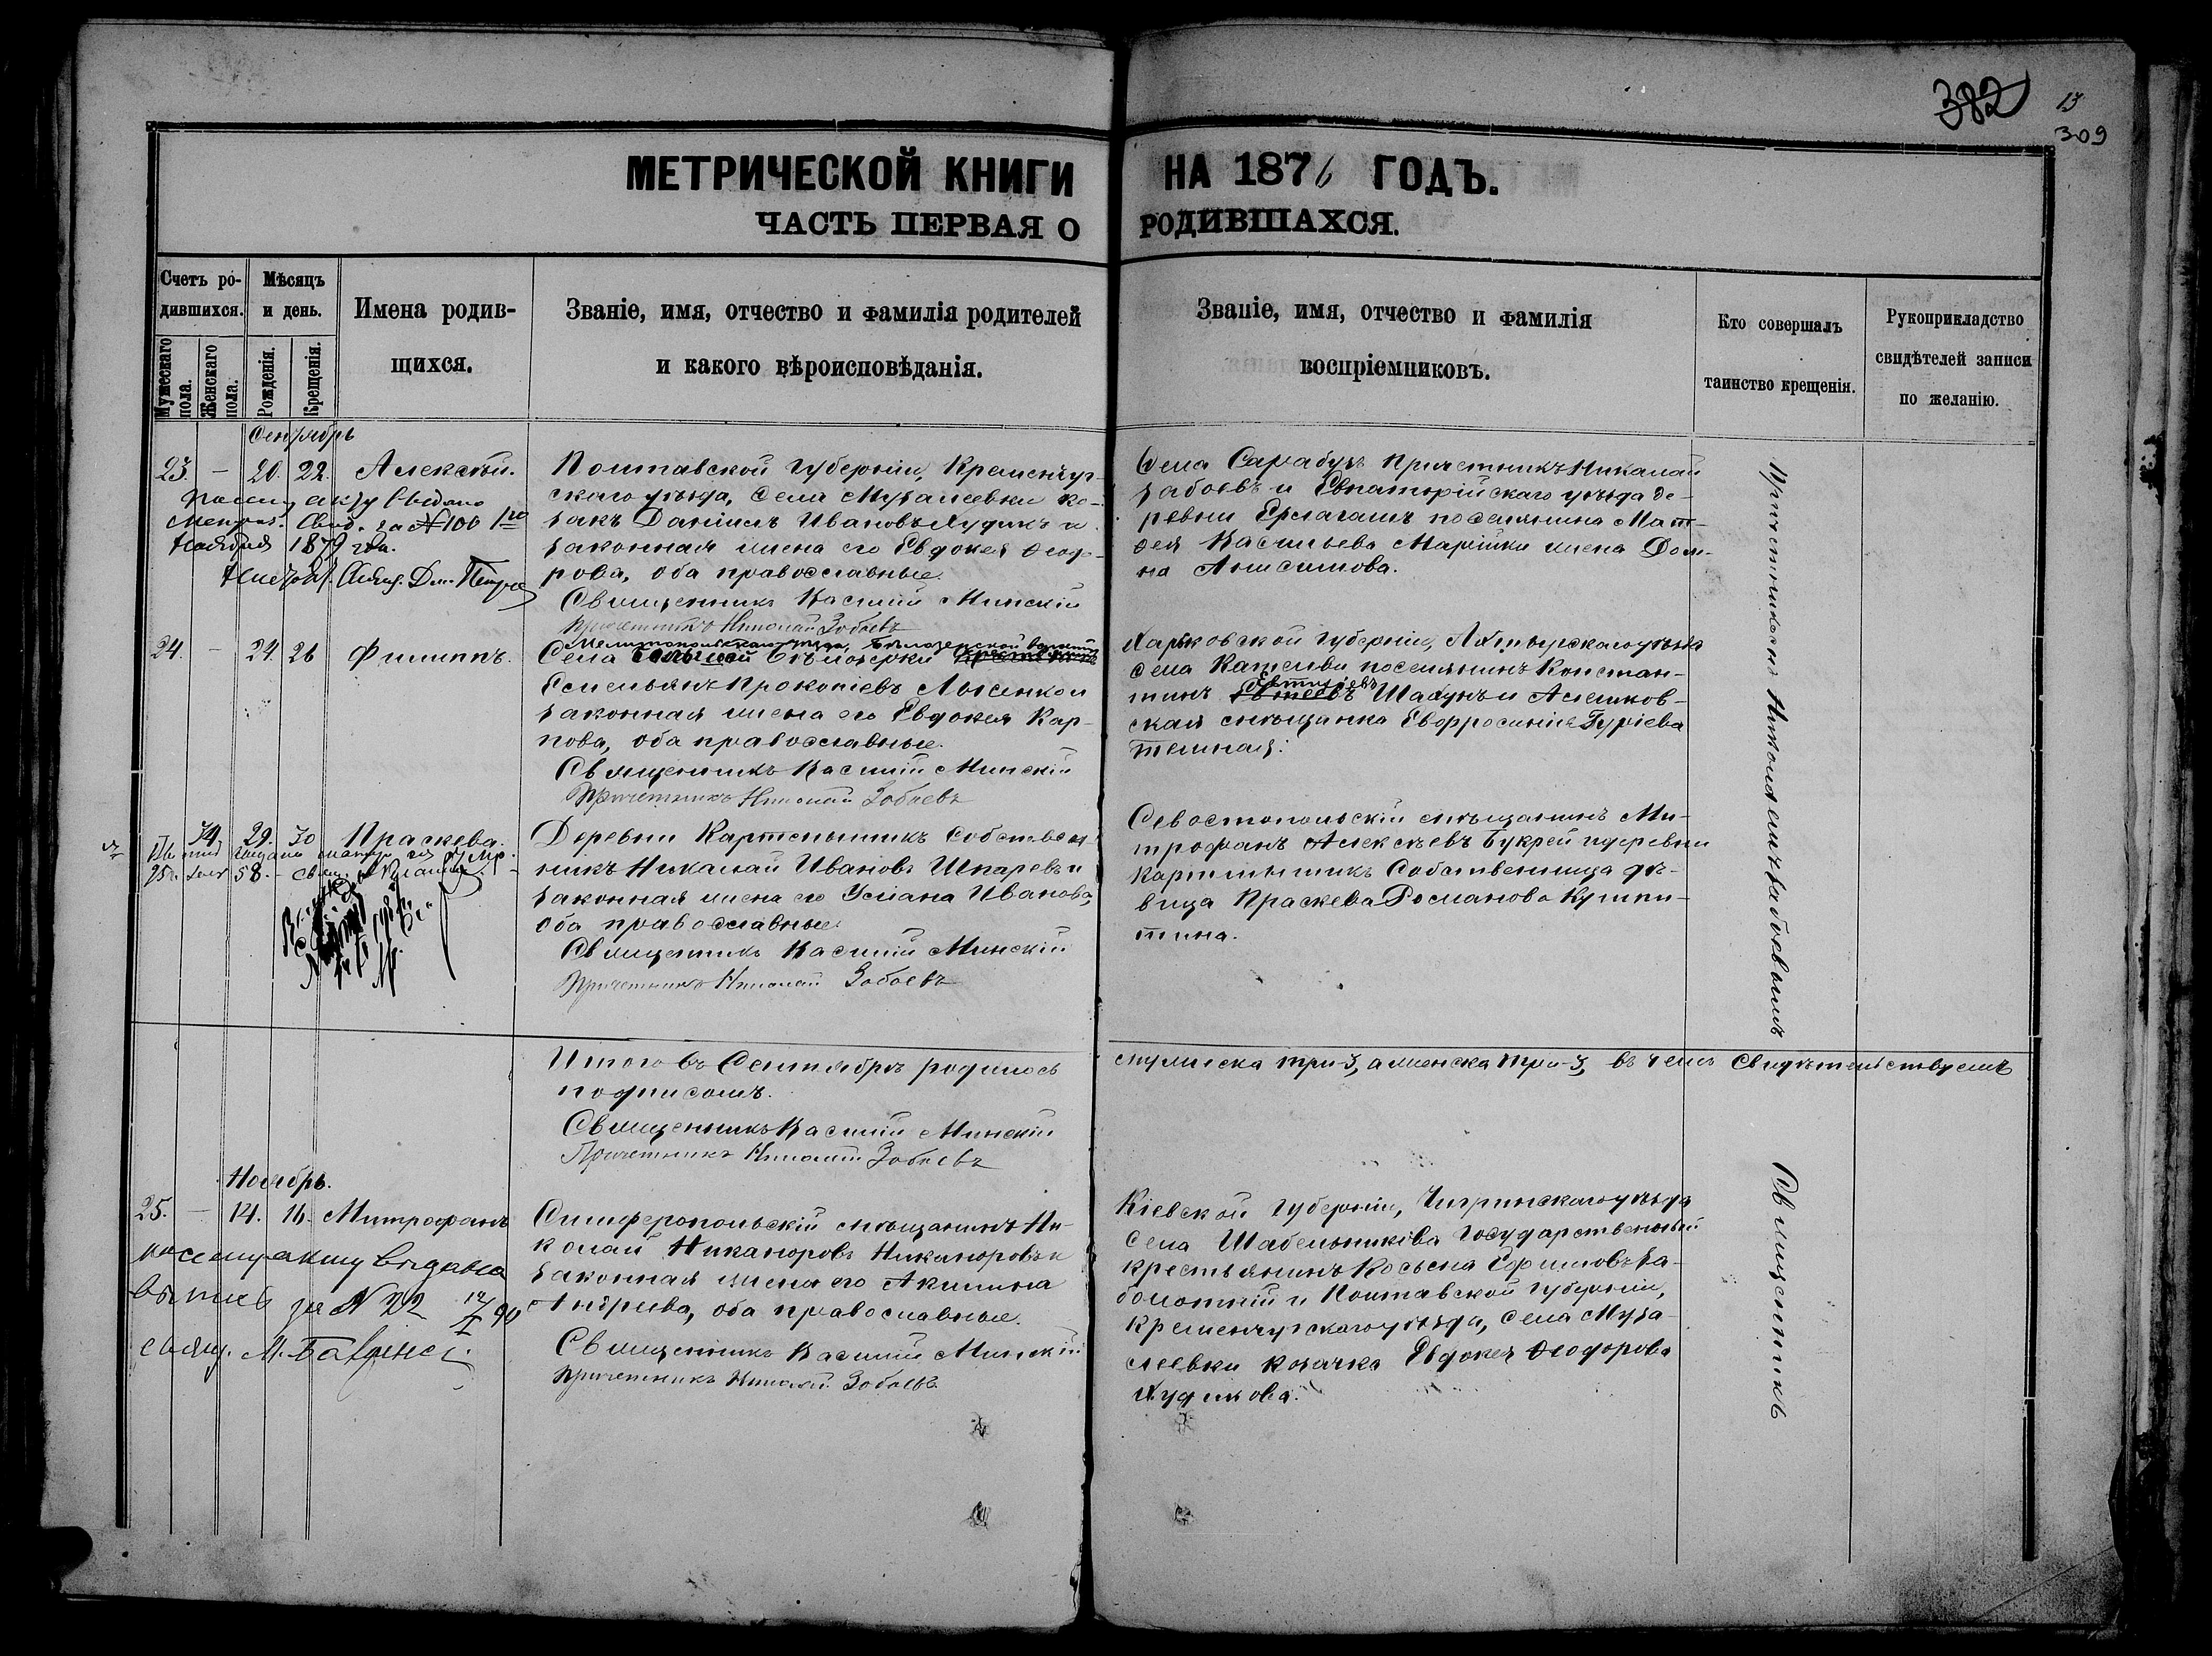 382
13
309
МЕТРИЧЕСКОЙ КНИГИ НА 1876 ГОДЪ.
ЧАСТЬ ПЕРВАЯ О РОДИВШАХСЯ.
Счетъ ро-
дившихся.
Мужескаго пола.
Женскаго пола.
Мѣсяцъ
и день.
Рожденія.
Крещенія.
Имена родив-
шихся.
Званіе, имя, отчество и фамилія родителей
и какого вѣроисповѣданія.
Званіе, имя, отчество и фамилія
воспріемниковъ.
Кто совершалъ
таинство крещенія.
Рукоприкладство
свидѣтелей записи
по желанію.
Сентябрь
23. – 20. 22. Алексѣй.
по сему акту выдано
Метрич. Свид. за № 100 1го
Ноября 1879 года.
Свящ. Дм.
Полтавской губерніи, Кременчуг-
скаго уѣзда, Села Мозалеевки ко-
закъ Даніилъ Ивановъ Худикъ и
законная жена его Евдокея Ѳеодо-
рова, оба православные.
Священникъ Василій Минскій
Причетникъ Николай Зобоевъ
Села Сарабузъ Причетникъ Николай
Забоевъ и Евпаторійскаго уѣзда де-
ревни поселянина Мат-
ѳея Васильева жена Дом-
на Анисимова.
24. – 24. 26 Филиппъ.
Мелитопольскаго уѣзда, Бѣлозерской волости
Села Бѣлозерки
Емельянъ Прокопіевъ Лысенко и
законная жена его Евдокея Кар-
пова, оба православные.
Священникъ Василій Минскій
Причетникъ Николай Зобоевъ
Харьковской губерніи, Ахтырскаго уѣзда
Села Котельвы поселянинъ Констан-
тинъ Шахунъ и Алешков-
ская мѣщанка Евфросинія Гуріева
Темная.
74. 29. 30 Праскева.
58.
Деревни Картмышикъ Собствен-
никъ Николай Ивановъ Шпаревъ и
законная жена его Уліана Иванова
Оба православные.
Священникъ Василій Минскій
Причетникъ Николай Зобоевъ
Севостопольскій мѣщанинъ Ми-
трофанъ Алексѣевъ Букрей и деревни
Картмышикъ Собственница дѣ-
вица Праскева Романова
Причетникъ Николаемъ Забоевымъ
Итого въ Сентябрѣ родилось мужеска три-3, а женска три-3, въ чемъ Свидѣтельствуемъ
подписомъ.
Священникъ Василій Минскій
Причетникъ Николай Зобоевъ
Ноябрь.
25. – 14. 16. Митрофанъ
по сему акту выдана
выпись за № 22 90
свящ. М.
Симферопольскій мѣщанинъ Ни-
колай Никаноровъ Никаноровъ и
законная жена его Акилина
Андреева, оба православные.
Священникъ Василій Минскій
Причетникъ Николай Зобоевъ
Кіевской губерніи, Чигринскаго уѣзда
Села Шабельниківа Государственный
крестьянинъ Косьма Ефимовъ За-
болотній и Полтавской губерніи,
Кременчугскаго уѣзда, Села Муза-
леевки козачка Евдокея Ѳеодорова
Худикова.
Священникъ